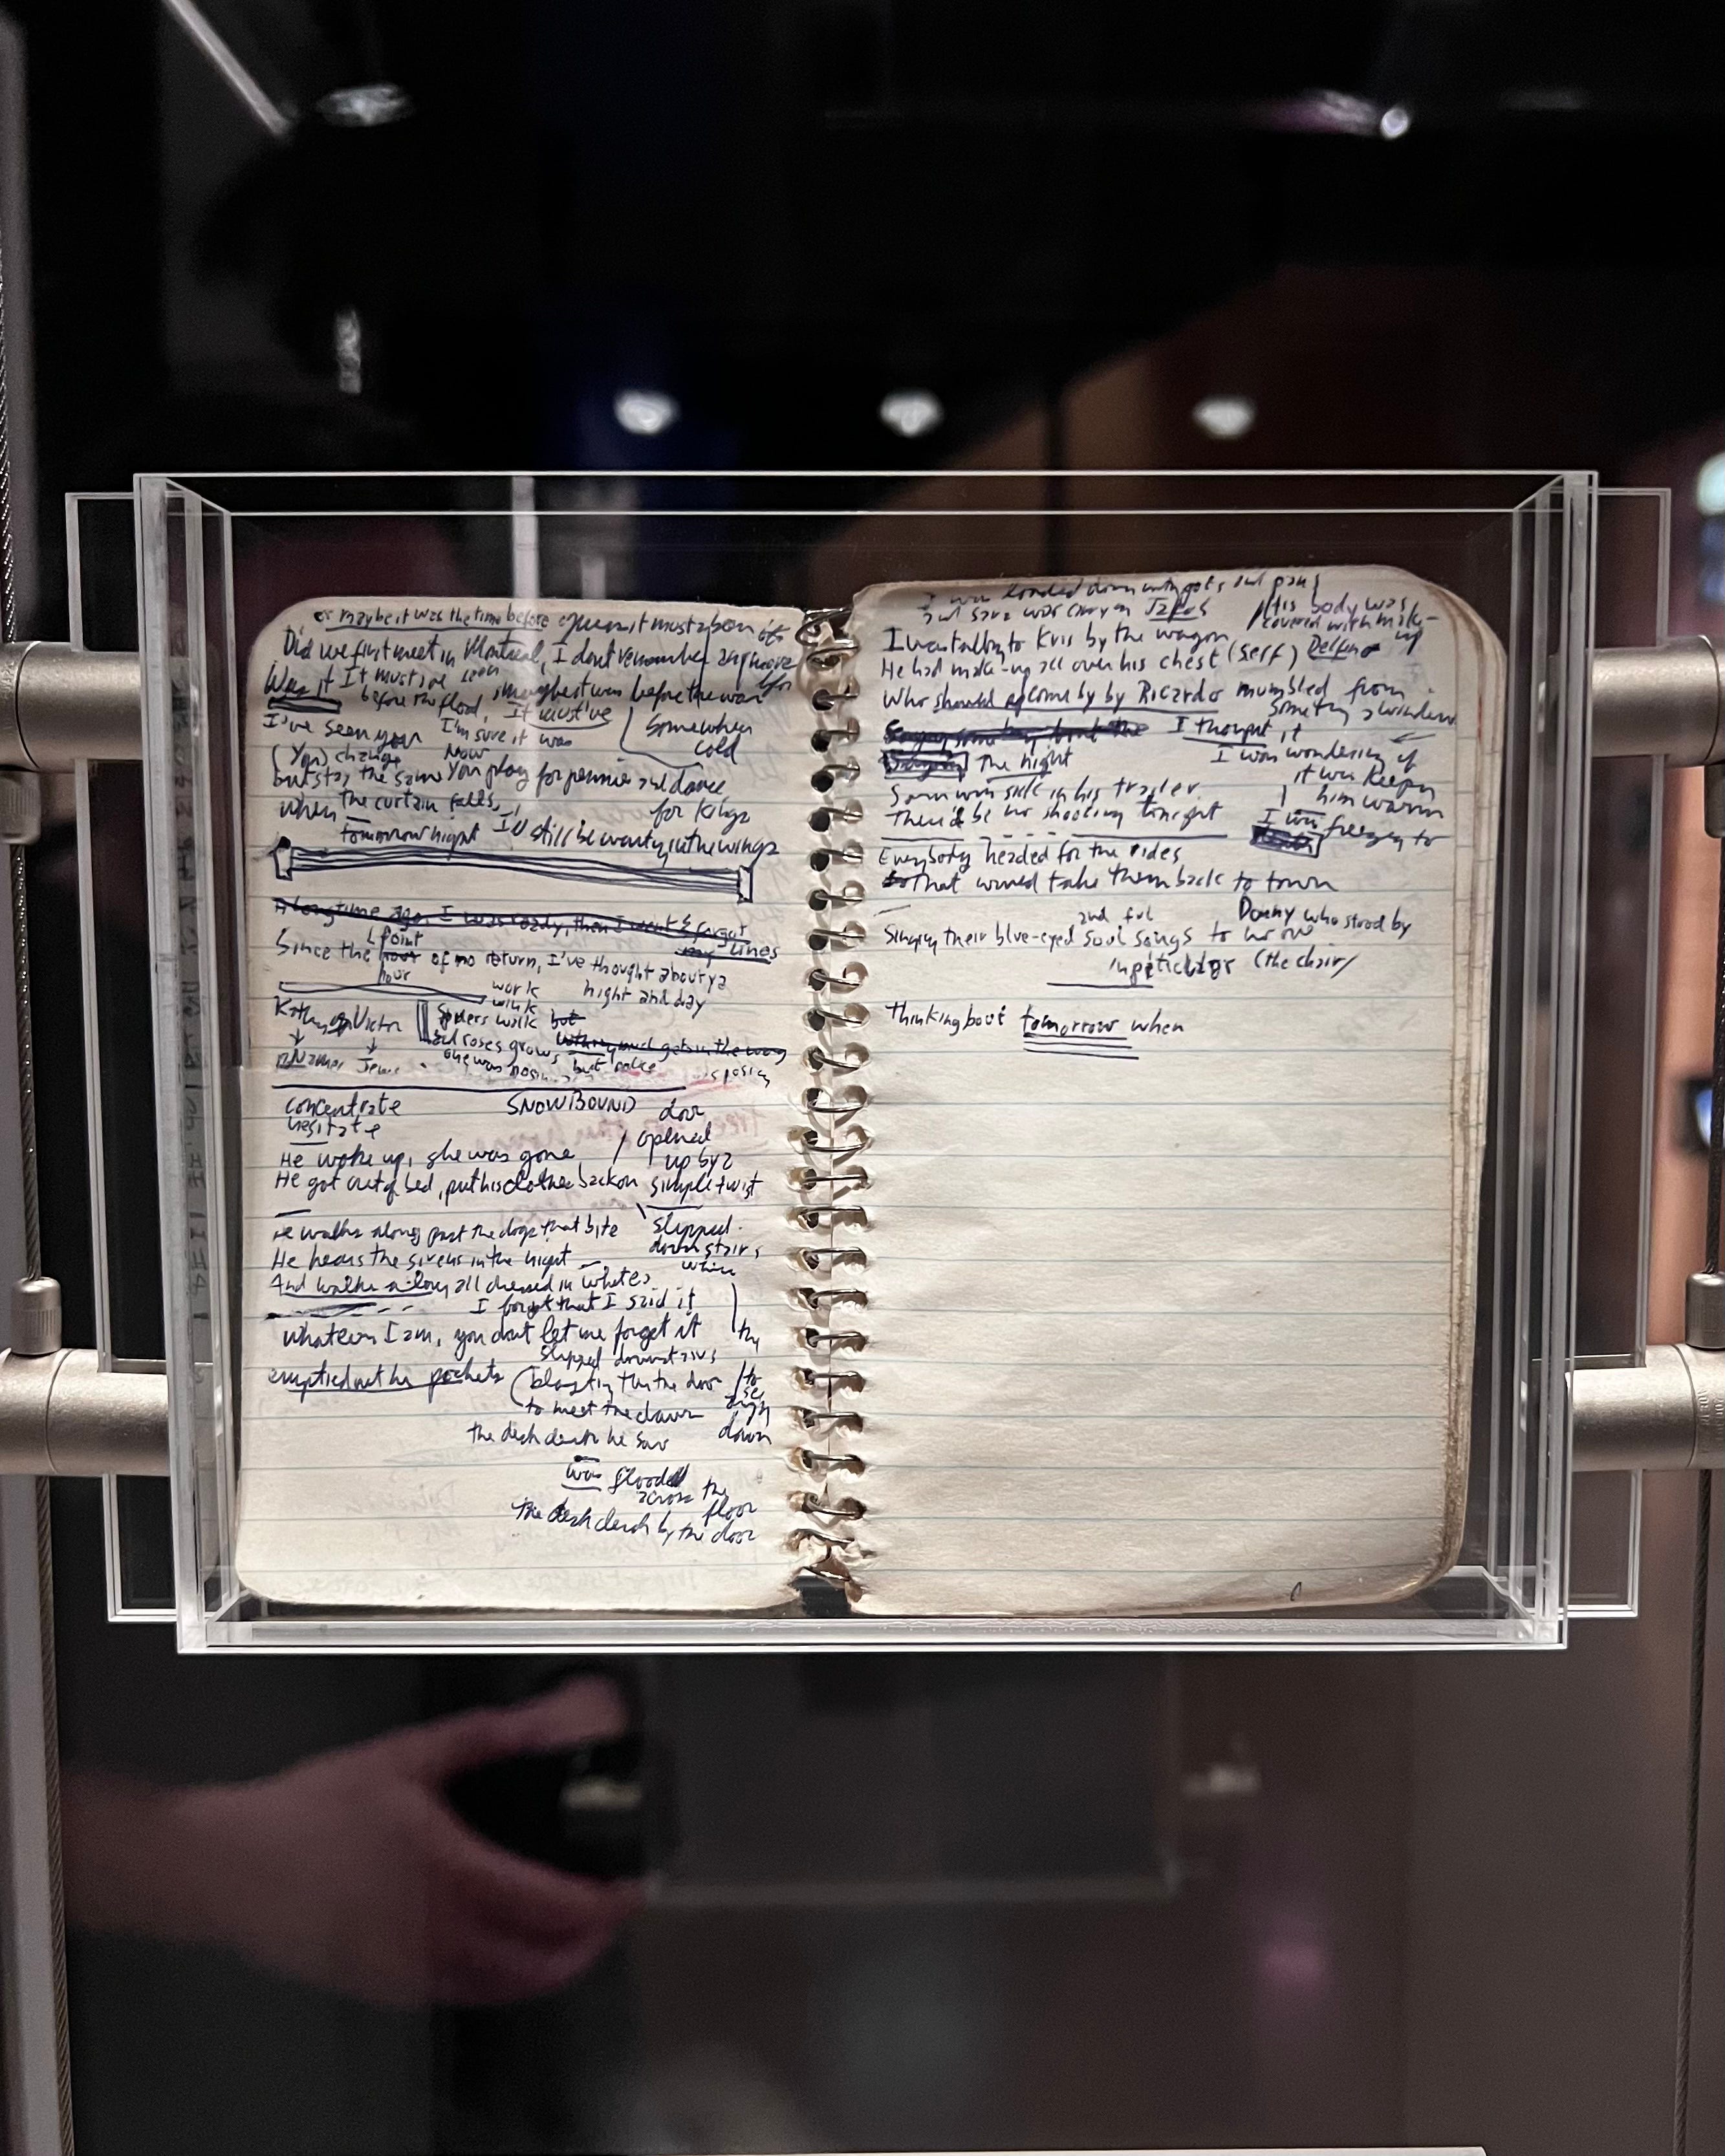 or maybe it was the time before
Did we first meet in Montreal, I dont remember anymore
Was it It must've been
before the flood, maybe it was before the war
I've seen you I'm sure it was
It must've
Somewhere
cold
(You) change Now
but stay the same You play for pennies and dance
for Kings
when the curtain falls,
tomorrow night I'll still be waiting in the wings
A long time ago, I was ready, then I went & forgot
my lines
point
Since the hour of no return, I've thought about ya
hour
night and day
work
walk
Kathy Victor
Spiders walk but
and roses grow
one was but
SNOWBOUND
concentrate
hesitate
door
opened
up by a
simple twist
He woke up, she was gone
He got out of bed, put his clothes back on
He walks along past the dogs that bite
He hears the sirens in the night
And walks along all dressed in white
slipped
downstairs
I forgot that I said it
Whatever I am, you dont let me forget it
try
slipped downstairs
emptied out his pockets
(blasting thru the door
to meet the dawn
to
down
the desk clerk he saw
was flooded
across the
floor
the desk clerk by the door
I was loaded down with pots and pans
and Sara was carryin
His body was
covered with make-
up
I was talking to Kris by the wagon
He had make-up all over his chest (self)
Who should come by by Ricardo mumbled from
Saying something bout the
I thought it
The night
I was wondering if
it was keepin
him warm
I was freezing to
Sam was sick in his trailer
There'd be no shooting tonight
Everybody headed for the rides
That would take them back to town
and
Donny who stood by
Singing their blue-eyed soul songs to
(the chair)
thinking bout tomorrow when